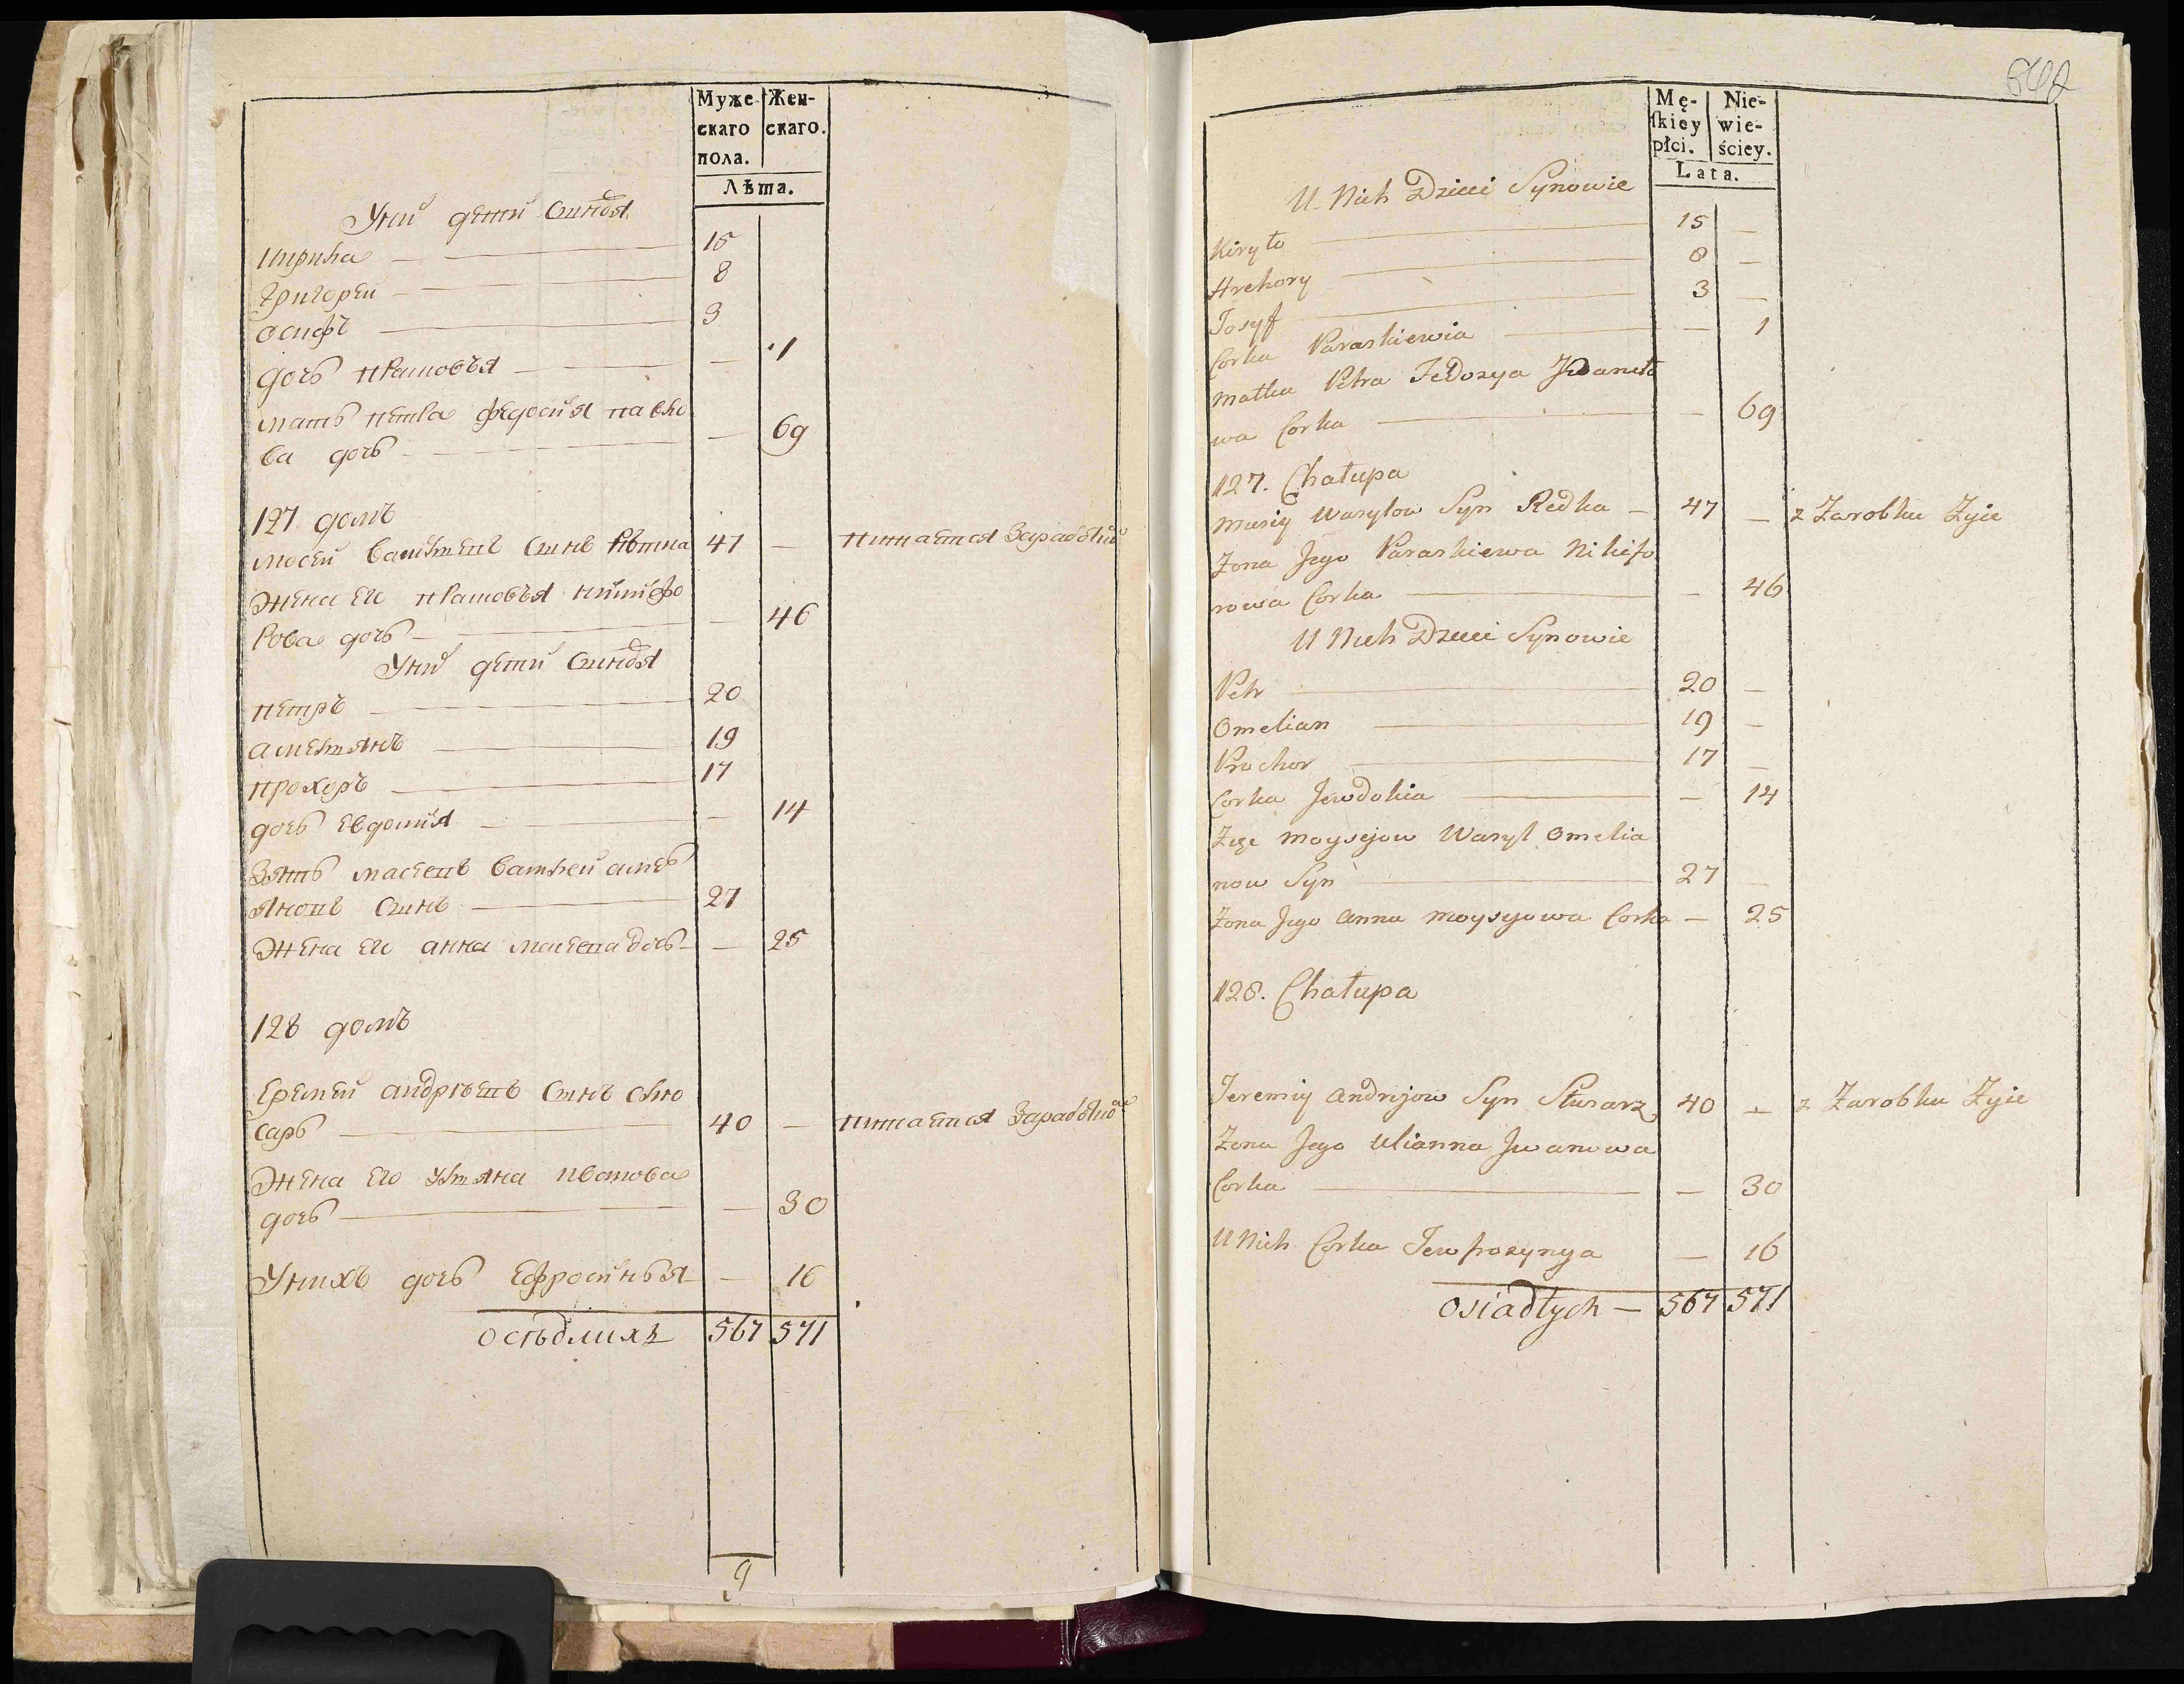 Муже
скаго
пола.
Жен-
скаго.
Лѣта.
У них дети синовя
Кирила — 15
Григорей — 8
Осифъ — 3
дочь — 1
мать Петра Федосия
ва дочь — 69
127 домъ
Мосей Васильевъ синъ 47 — питается Заработком
Жена Ег Никифо
рова дочь — 46
У них дети синовя
Петръ — 20
Амельянъ — 19
Прохоръ — 17
дочь Евдокия — 14
Зять Васи́лей Амел
яновъ синъ — 27
Жена Ег Анна дочь — 25
128 домъ
Еремей Андреевъ синъ слю
сарь — 40 — питается Заработком
Жена Его Уляна Иванова
дочь — 30
У нихъ дочь Ефросинья — 16
оседлихъ 567 571
9
642
Mę-
ſkiey
płci.
Nie-
wie-
ściey.
Lata.
U Nich Dzieci Synowie
Kiryło — 15 —
Hrehory — 8 —
Josyf — 3 —
Corka Paraskiewia — 1
Matka Petra Fedosya
wa Corka — 69
127. Chałupa
Musiy Wasylow Syn Redka — 47 — z Zarobku Żyie
Żona Jego Paraskiewa Nikifo
rowa Corka — 46
U Nich Dzieci Synowie
Petr — 20 —
Omelian — 19 —
Prochor — 17 —
Corka Jewdokia — 14
Zięć Moysejow Wasyl Omelia
now Syn — 27 —
Żona Jego Anna Moysejowa Corka — 25
128. Chałupa
Jeremiy Andrijow Syn Slusarz 40 — z Zarobku Żyie
Żona Jego Ulianna Jwanowa
Corka — 30
U Nich Corka Jewfrosynya — 16
Osiadłych — 567 571